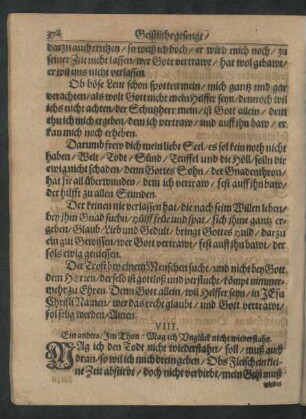 378 Geistliche gesenge/
darzu auch trützen/ so weiß ich doch/ er wird mich noch/ zu
seiner Zeit nicht lassen/ wer Gott vertrawt/ hat wol gebawt/
er wil uns nicht verlassen.
Ob böse Leut schon spotten mein/ mich gantz und gar
verachten/ als wolt Gott nicht mein Helffer seyn/ dennoch wil
ichs nicht achten/ der Schutzherr mein/ ist Gott allein/ dem
thu ich mich ergeben/ dem ich vertraw/ und auff ihn baw/ er
kan mich noch erheben.
Darumb frew dich mein liebe Seel/ es sol kein noth nicht
haben/ Welt/ Todt/ Sünd/ Teuffel und die Höll/ solln die
ewig nicht schaden/ denn Gottes Sohn/ der Gnadenthron/
hat sie all überwunden/ dem ich vertraw/ fest auff ihn baw/
der hilfft zu allen Stunden.
Der keinen nie verlassen hat/ die nach seim Willen leben/
bey ihm Gnad suchn/ Hülff früe und spat/ sich ihme gantz er-
geben/ Glaub/ Lieb und Gedult/ bringt Gottes Huld/ darzu
ein gut Gewissen/ wer Gott vertrawt/ fest auff ihn bawt/ der
sols ewig geniessen.
Der Trost bey einem Menschen sucht/ und nicht bey Gott
dem Herren/ derselb ist gottloß und verflucht/ kömpt nimmer-
mehr zu Ehren. Denn Gott allein/ wil Helffer seyn/ in JEsu
Christi Namen/ wer das recht glaubt/ und Gott vertrawt/
sol selig werden/ Amen.
VIII.
Ein anders/ Im Thon/ Mag ich Unglück nicht wiederstahn.
MAg ich den Todt nicht wiederstahn/ soll/ muß auch
dran/ so wil ich mich drein geben/ Obs Fleisch ein klei-
ne Zeit abstirbt/ doch nicht verdirbt/ mein Geist muß